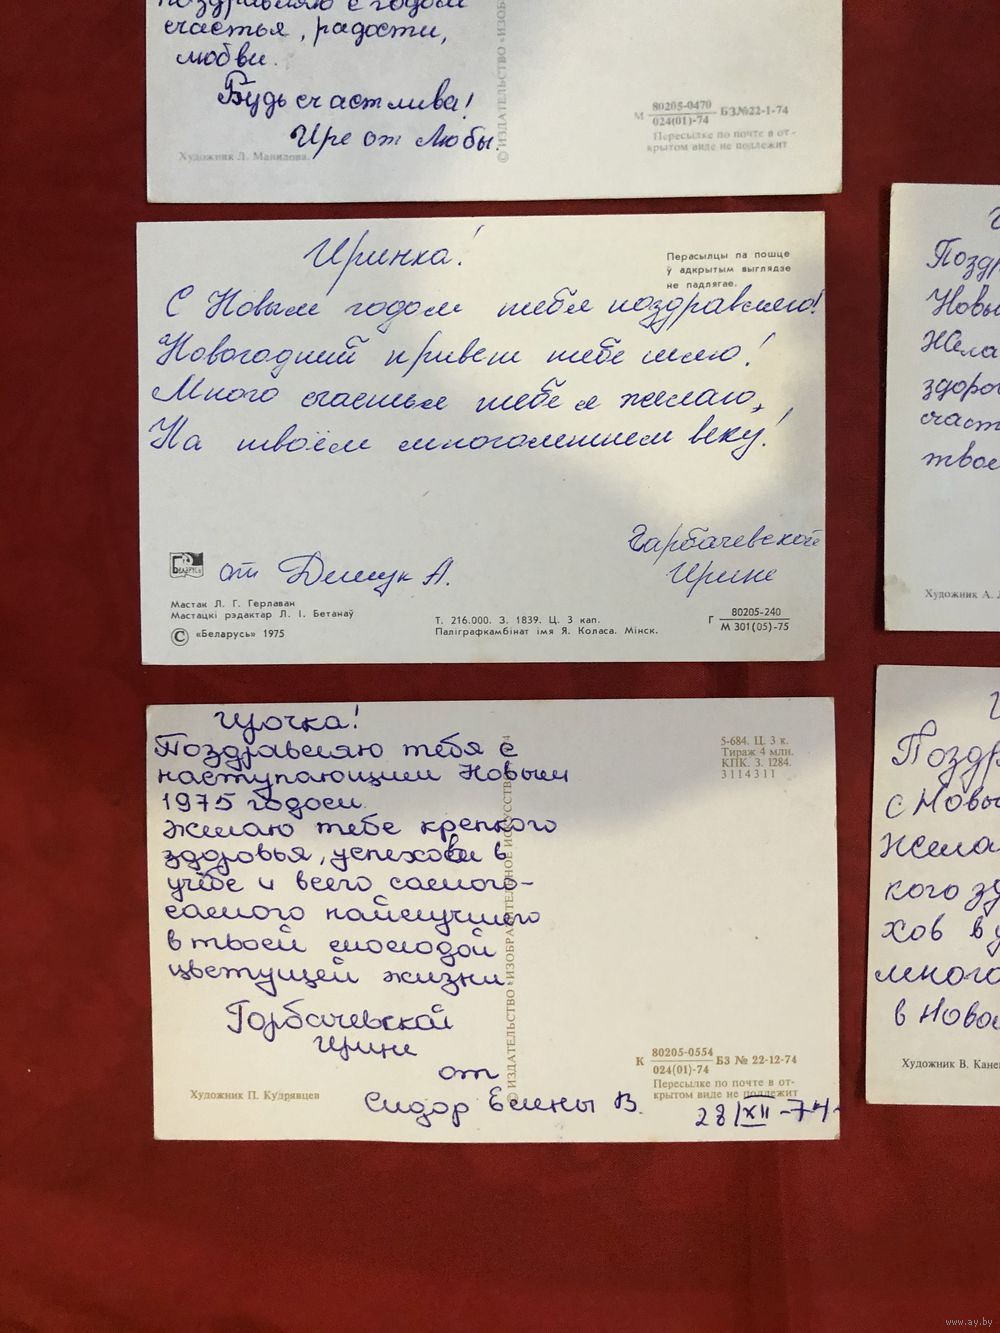 поздравляю с годом
счастья, радости,
любви.
Будь счастлива!
Ире от Любы.
Художник Л. Манилова.
© ИЗДАТЕЛЬСТВО «ИЗОБ
М 80205-0470 БЗ№22-1-74
024(01)-74
Пересылке по почте в от-
крытом виде не подлежит
Иринка!
Перасылцы па пошце
ў адкрытым выглядзе
не падлягае.
С Новым годом тебя поздравляю!
Новогодний привет тебе шлю!
Много счастья тебе я желаю,
На твоём многолетнем веку!
Гарбачевской
Ирине
БЕЛАРУСЬ
от Демук А.
Мастак Л. Г. Герлаван
Мастацкі рэдактар Л. І. Бетанаў
© «Беларусь» 1975
Т. 216.000. З. 1839. Ц. 3 кап.
Паліграфкамбінат імя Я. Коласа. Мінск.
Г 80205-240
М 301(05)-75
Ирочка!
Поздравляю тебя с
наступающим Новым
1975 годом.
Желаю тебе крепкого
здоровья, успехов в
учёбе и всего самого-
самого наилучшего
в твоей молодой
цветущей жизни
Горбачевской
Ирине
от
Сидор Елены В.
28/XII-74
5-684. Ц. 3 к.
Тираж 4 млн.
КПК. З. 1284.
3114311
© ИЗДАТЕЛЬСТВО «ИЗОБРАЗИТЕЛЬНОЕ ИСКУССТВО»
К 80205-0554 БЗ № 22-12-74
024(01)-74
Пересылке по почте в от-
крытом виде не подлежит
Художник П. Кудрявцев
Позд
Новы
Жела
здоро
счаст
твое
Художник А.
Поздр
с Новы
Жела
кого зд
хов в у
много
в Ново
Художник В. Кане
www.ay.by